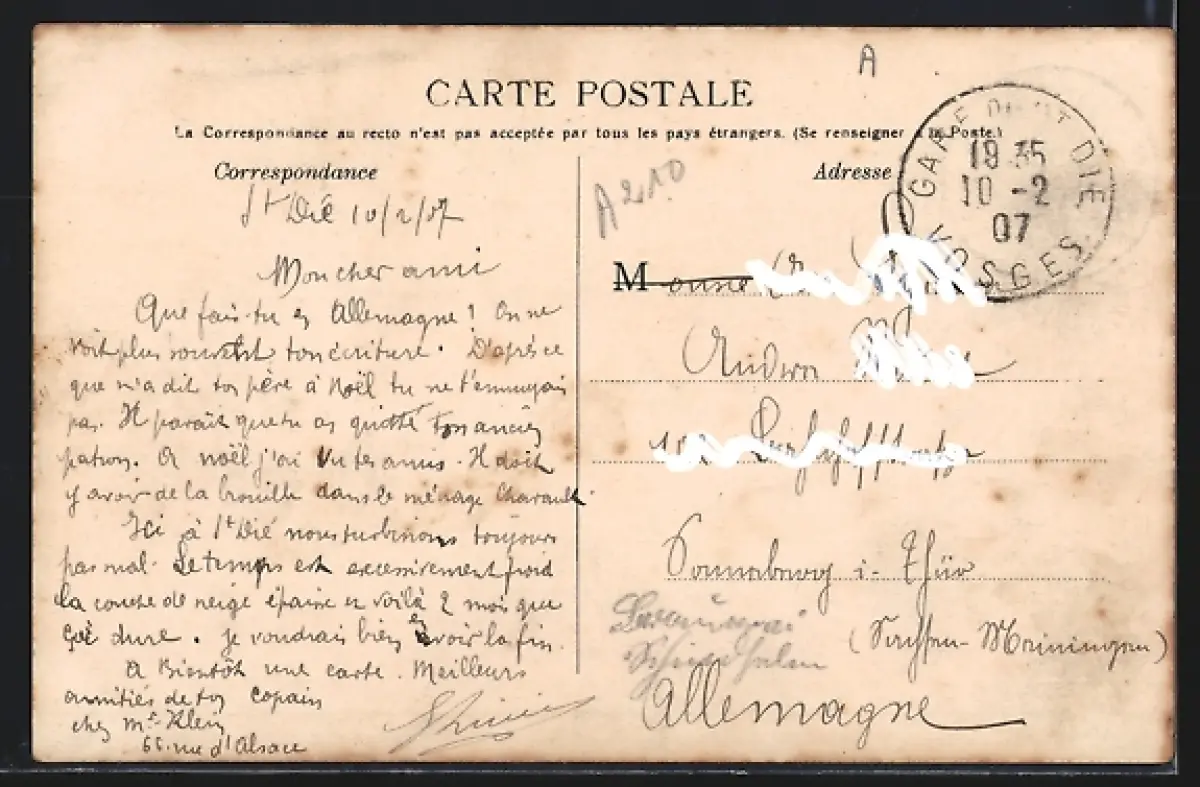 A
CARTE POSTALE
La Correspondance au recto n'est pas acceptée par tous les pays étrangers. (Se renseigner à la Poste.)
Correspondance
St Dié 10/2/07
Mon cher ami
Que fais-tu en Allemagne? On ne
voit plus souvent ton écriture. D'après ce
que m'a dit ton père à Noël tu ne t'ennuyais
pas. Il parait que tu as quitté ton ancien
patron. A noël j'ai vu tes amis. Il doit
y avoir de la brouille dans le ménage
Ici à St Dié nous turbinons toujours
pas mal. Le temps est excessivement froid
la couche de neige épaisse en voilà 2 mois que
çà dure. je voudrais bien en voir la fin.
A Bientôt une carte. Meilleurs
amitiés de ton copain
chez Mr Klein
66 rue d'Alsace
A 210
Adresse
GARE DE ST DIÉ
18 35
10 -2
07
VOSGES
M
Sonneberg i. Thür
(Sachsen-Meiningen)
Allemagne